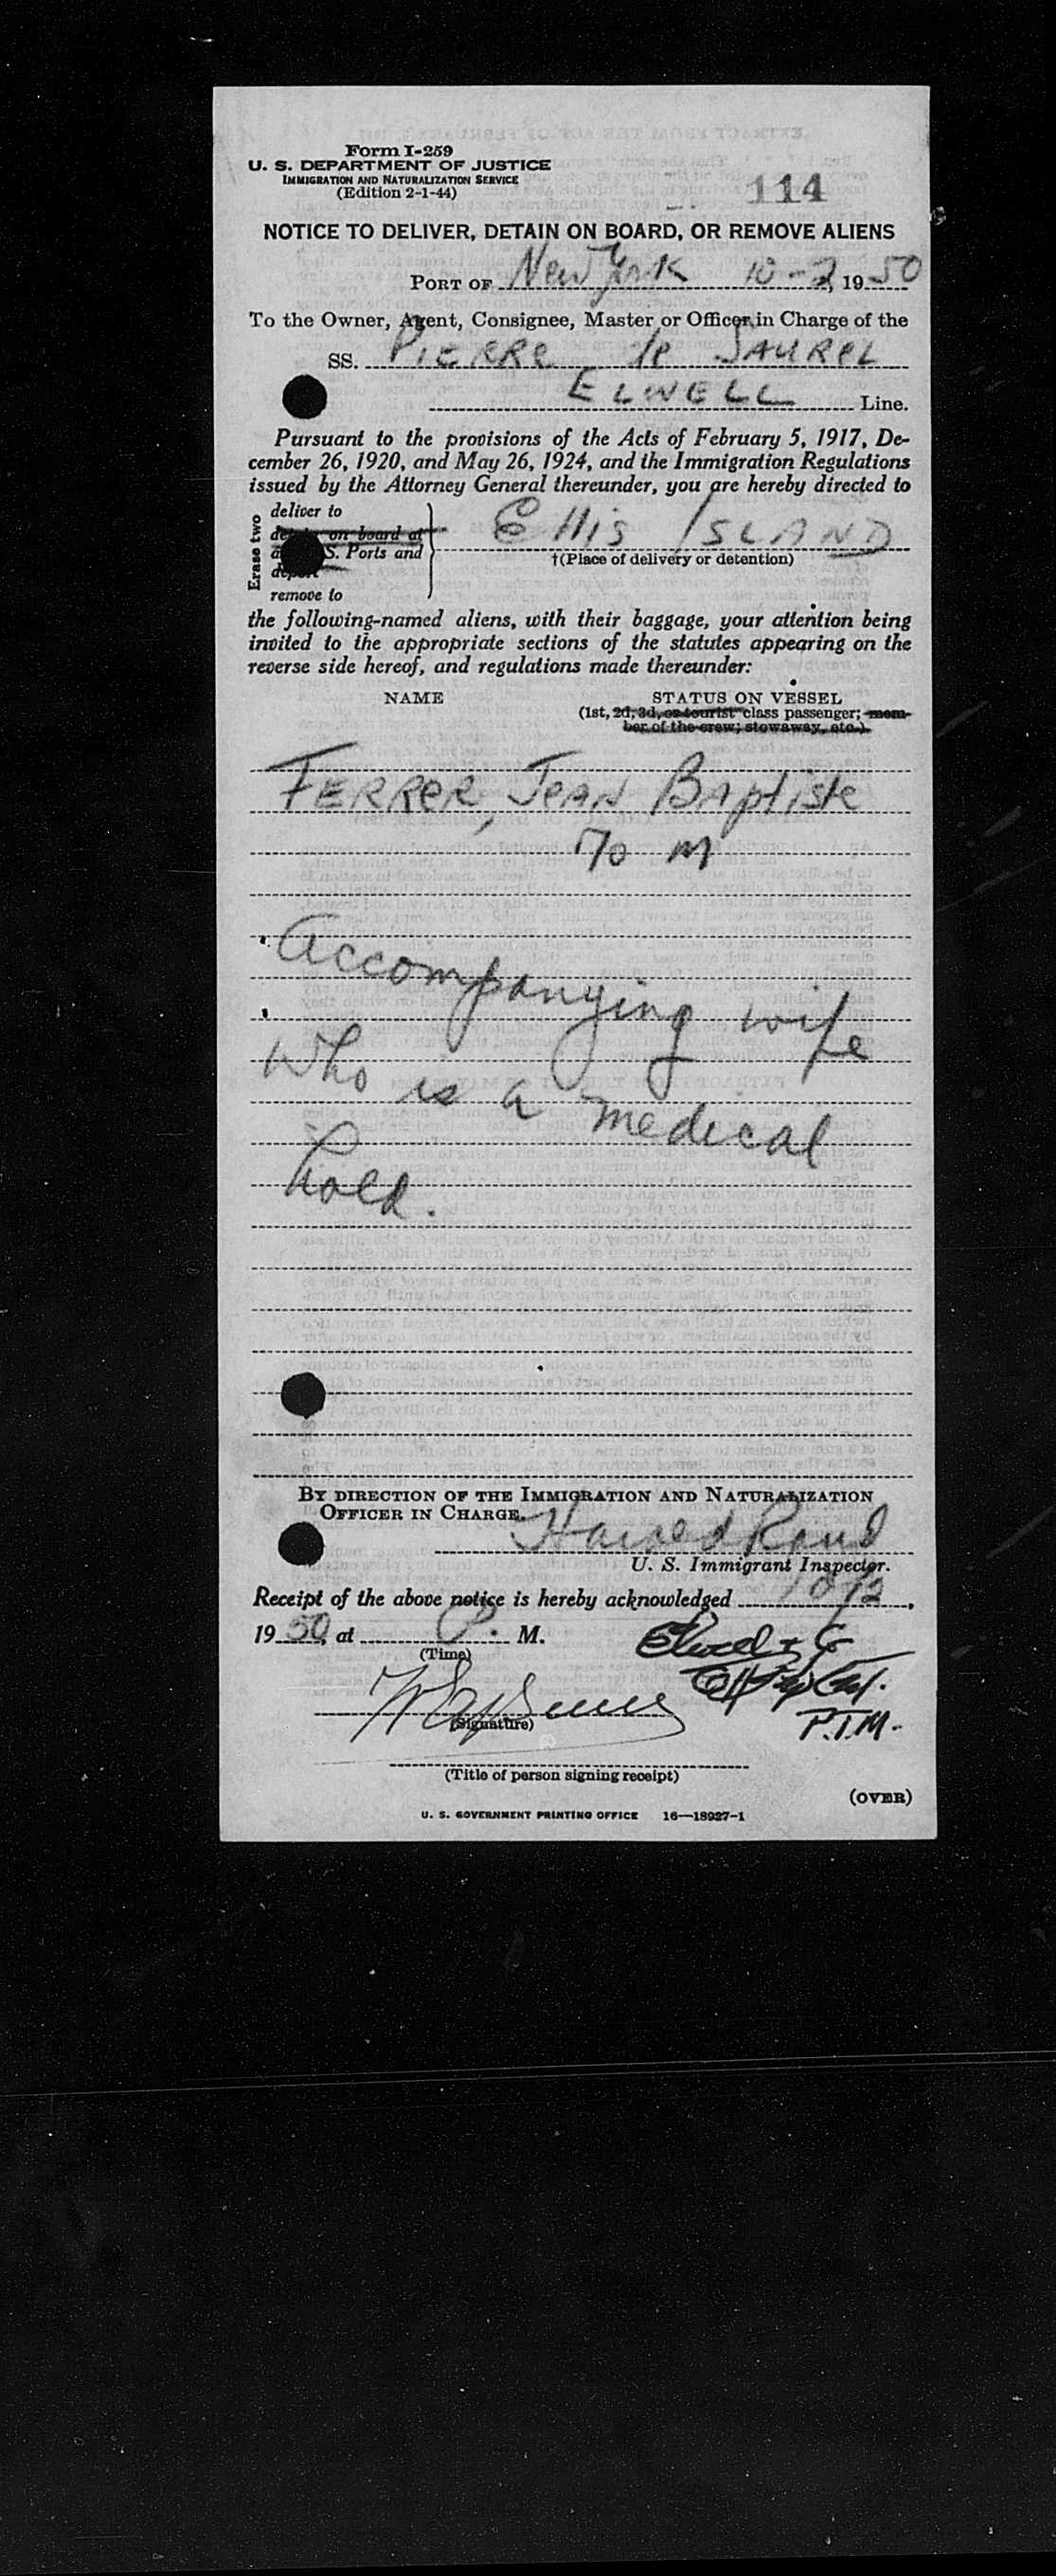 Form I-259
U. S. DEPARTMENT OF JUSTICE
IMMIGRATION AND NATURALIZATION SERVICE
(Edition 2-1-44)
114
NOTICE TO DELIVER, DETAIN ON BOARD, OR REMOVE ALIENS
PORT OF New York 10-2, 1950
To the Owner, Agent, Consignee, Master or Officer in Charge of the
SS. PIERRE de SAUREL
ELWELL Line.
Pursuant to the provisions of the Acts of February 5, 1917, De-
cember 26, 1920, and May 26, 1924, and the Immigration Regulations
issued by the Attorney General thereunder, you are hereby directed to
Erase two
deliver to
on board at
S. Ports and
remove to
Ellis ISLAND
†(Place of delivery or detention)
the following-named aliens, with their baggage, your attention being
invited to the appropriate sections of the statutes appearing on the
reverse side hereof, and regulations made thereunder:
NAME STATUS ON VESSEL
(1st, 2d, 3d, or tourist class passenger; mem-
ber of the crew; stowaway, etc.)
FERRER, JEAN BAptiste
70 M
Accompanying wife
Who is a medical
hold.
BY DIRECTION OF THE IMMIGRATION AND NATURALIZATION
OFFICER IN CHARGE.
Harold Rand
U. S. Immigrant Inspector.
Receipt of the above notice is hereby acknowledged 10/2,
1950, at P. M.
(Time)
Elwell & Co
(Signature)
P.T.M.
(Title of person signing receipt)
(OVER)
U. S. GOVERNMENT PRINTING OFFICE 16—18927-1